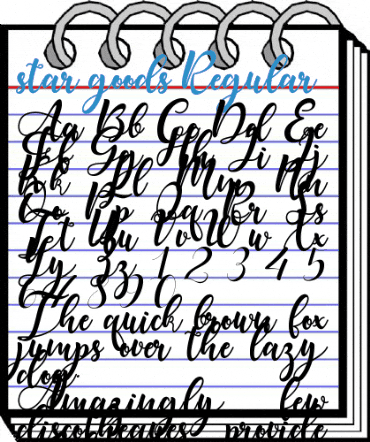 star goods Regular
Aa Bb Cc Dd Ee
Ff Gg Hh Ii Jj
Kk Ll Mm Nn
Oo Pp Qq Rr Ss
Tt Uu Vv Ww Xx
Yy Zz 1 2 3 4 5
6 7 8 9 0
The quick brown fox
jumps over the lazy
dog.
Amazingly few
discotheques provide